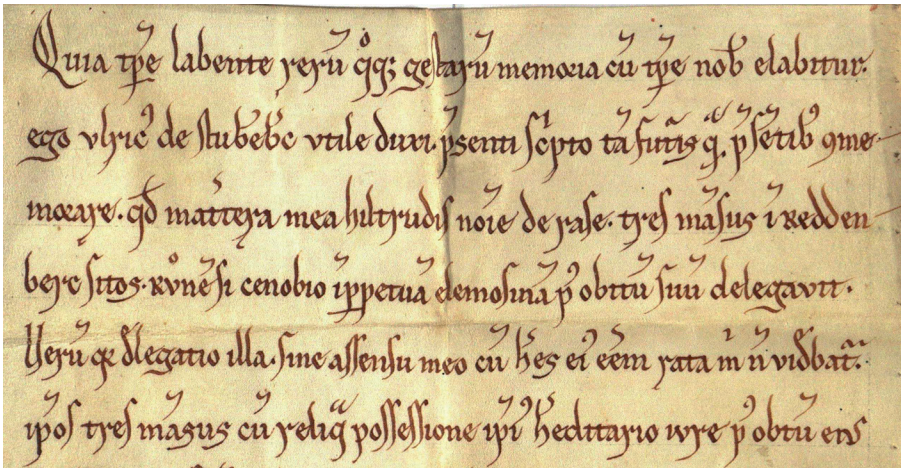 Quia tp̄e labente rerū q̊q; gestarū memoria cū tp̄e nob̄ elabitur.
ego vlricꝰ de stubēb̄c vtile duxi. p̄senti sc̍pto tā fut̄is q̄. p̄sētibꝫ ꝯme-
morare. qd̄ mat̄tera mea hiltrudis noīe de rase. tres māsus ī redden-
berc sitos. rv̊nēsi cenobio īꝑpetuā elemosinā pꝰ obitū suū delegavit.
Uerū qꝛ d̄legatio illa. sine assensu meo cū h̄es eiꝰ eēm rata m̍ n̄ vid̄bat᷑.
ip̄os tres māsus cū reliq̄ possessione ip̄iꝰ h̄editario iure pꝰ obitū eiꝰ